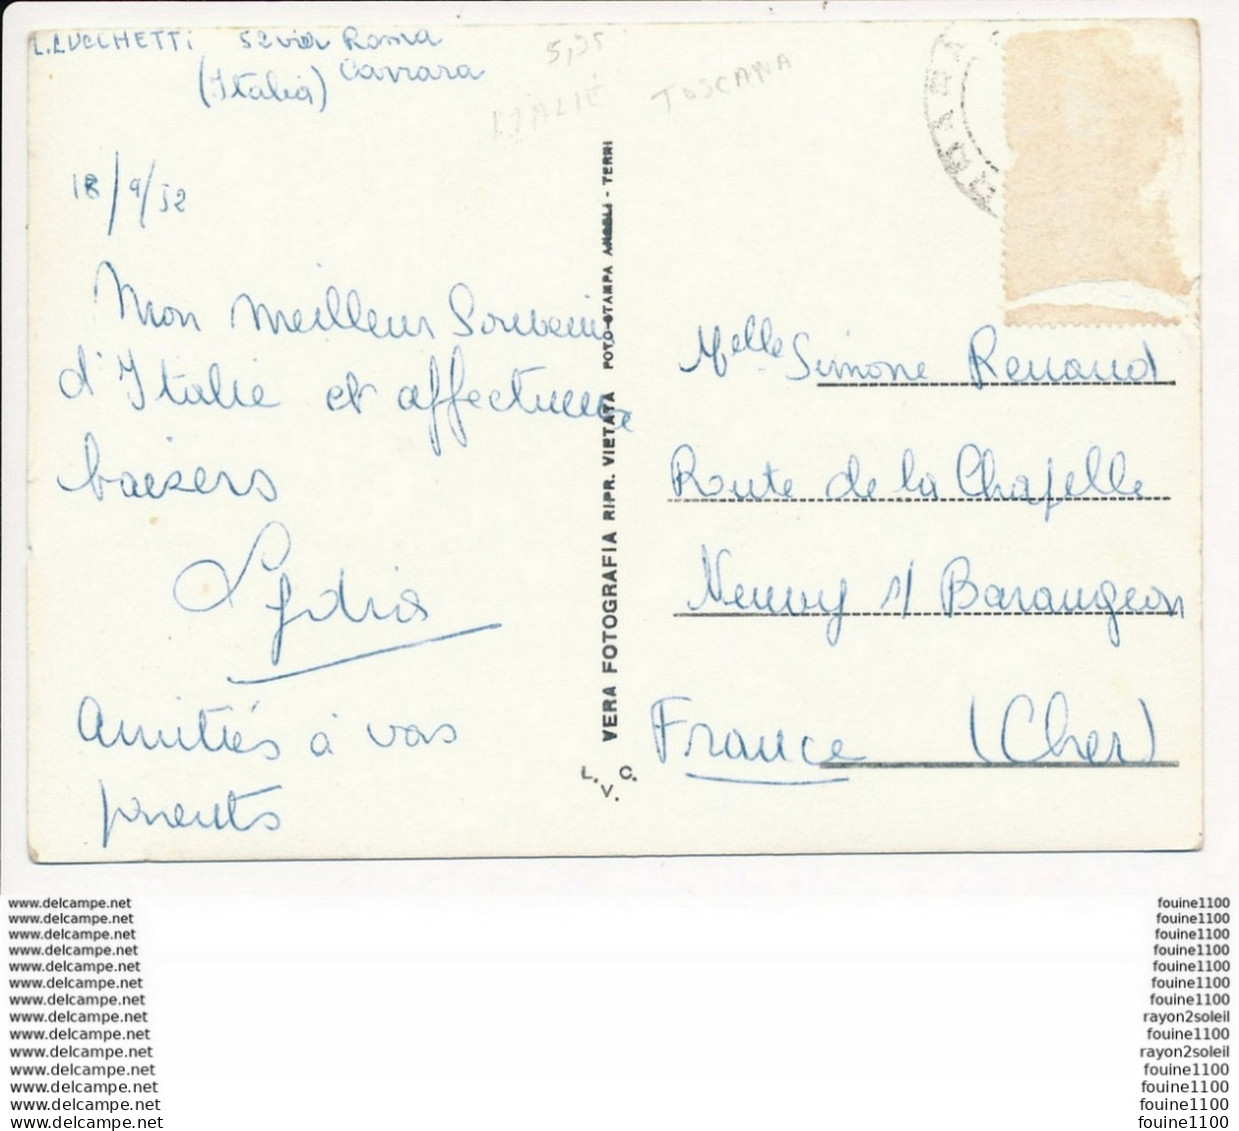 L. LUCCHETTI 52 via Roma
(Italia) Carrara
5,35
ITALIE
TOSCANA
18/9/52
Mon meilleur Souvenir
d'Italie et affectueux
baisers
Lydia
Amitiés à vos
parents
VERA FOTOGRAFIA RIPR. VIETATA FOTO-STAMPA ANGELI - TERNI
L. V. C.
Melle Simone Renaud
Route de la Chapelle
Neuvy s/ Barangeon
France (Cher)
www.delcampe.net
www.delcampe.net
www.delcampe.net
www.delcampe.net
www.delcampe.net
www.delcampe.net
www.delcampe.net
www.delcampe.net
www.delcampe.net
www.delcampe.net
www.delcampe.net
www.delcampe.net
www.delcampe.net
www.delcampe.net
fouine1100
fouine1100
fouine1100
fouine1100
fouine1100
fouine1100
fouine1100
rayon2soleil
fouine1100
rayon2soleil
fouine1100
fouine1100
fouine1100
fouine1100